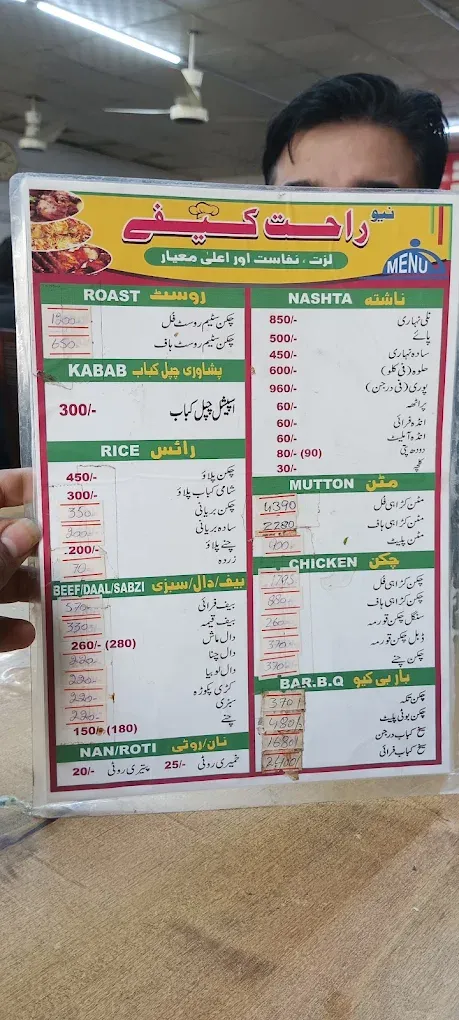 نیو راحت کیفے
لزت ، نفاست اور اعلیٰ معیار
MENU
ROAST روسٹ
چکن سٹیم روسٹ فل
چکن سٹیم روسٹ ہاف 650
KABAB پشاوری چپل کباب
300/- اسپیشل چپل کباب
RICE رائس
450/- چکن پلاؤ
300/- شامی کباب پلاؤ
350 چکن بریانی
200 سادہ بریانی
200/- چنے پلاؤ
70 زردہ
BEEF/DAAL/SABZI بیف/دال/سبزی
570 بیف فرائی
330 بیف قیمہ
260/- (280) دال ماش
220 دال چنا
220 دال لوبیا
220 کڑی پکوڑہ
220 سبزی
150/- (180) چنے
NAN/ROTI نان/روٹی
20/- پتیری روٹی 25/- خمیری روٹی
NASHTA ناشتہ
850/- نلی نہاری
500/- پائے
450/- سادہ نہاری
600/- حلوہ (فی کلو)
960/- پوری (فی درجن)
60/- پراٹھہ
60/- انڈہ فرائی
60/- انڈہ آملیٹ
80/- (90) دودھ پتی
30/- کلچہ
MUTTON مٹن
4390 مٹن کڑاہی فل
2280 مٹن کڑاہی ہاف
مٹن پلیٹ
CHICKEN چکن
چکن کڑاہی فل
چکن کڑاہی ہاف
سنگل چکن قورمہ
ڈبل چکن قورمہ
370 چکن چنے
BAR.B.Q بار بی کیو
370/ چکن تکہ
480/ چکن بوٹی پلیٹ
1680/ سیخ کباب درجن
2400/ سیخ کباب فرائی